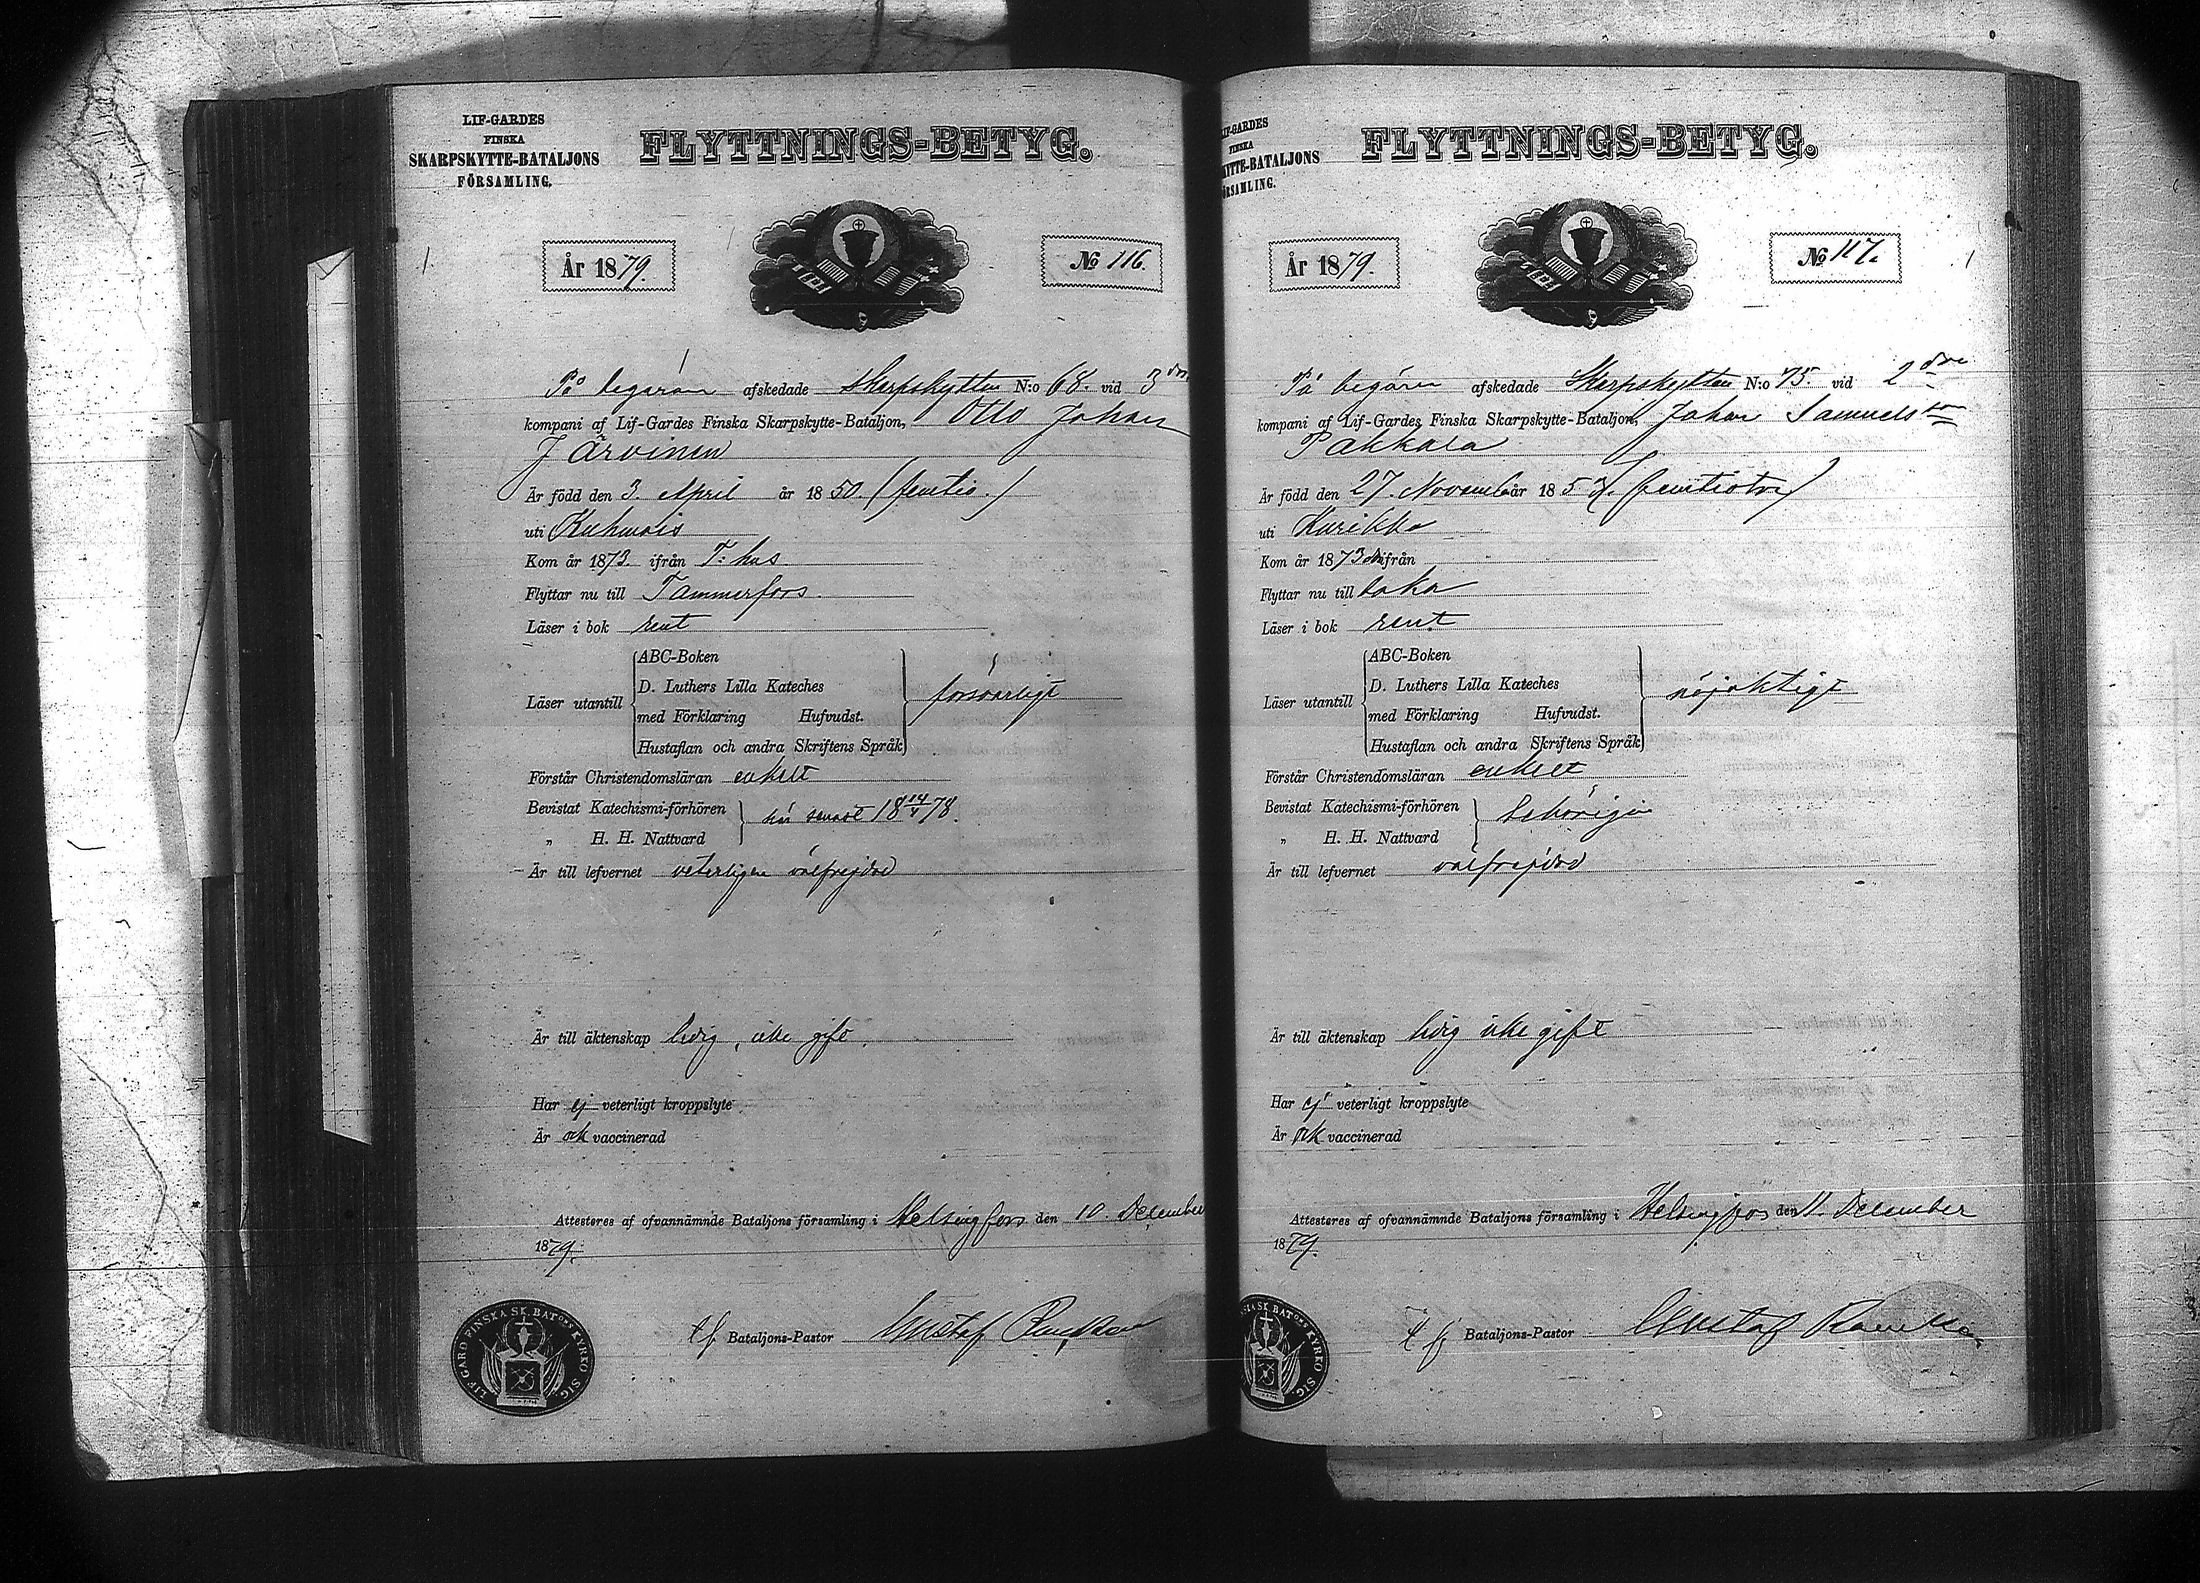 LIF-GARDES
FINSKA
SKARPSKYTTE-BATALJONS
FÖRSAMLING.
FLYTTNINGS-BETYG.
År 1879.
No 116.
På begäran afskedade Skarpskytten N:o 68. vid 3dje
kompani af Lif-Gardes Finska Skarpskytte-Bataljon, Otto Johan
Järvinen
Är född den 3. April år 1850. (femtio.)
uti Kuhmois
Kom år 1873 ifrån T:hus
Flyttar nu till Tammerfors.
Läser i bok rent
ABC-Boken
D. Luthers Lilla Kateches
Läser utantill med Förklaring Hufvudst. försvarligt
Hustaflan och andra Skriftens Språk
Förstår Christendomsläran enkelt
Bevistat Katechismi-förhören
här senast 18 14/4 78.
„ H. H. Nattvard
Är till lefvernet veterligen välfrejdad
Är till äktenskap ledig, icke gift.
Har ej veterligt kroppslyte
Är ock vaccinerad
Attesteres af ofvannämnde Bataljons församling i Helsingfors den 10 December
1879.
t f Bataljons-Pastor Gustaf
LIF GARD FINSKA SK. BATONS KYRKO SIG.
LIF-GARDES
FINSKA
YTTE-BATALJONS
ÖRSAMLING.
FLYTTNINGS-BETYG.
År 1879.
No 117.
På begäran afskedade Skarpskytten N:o 75. vid 2dra
kompani af Lif-Gardes Finska Skarpskytte-Bataljon, Johan Samuelsson
Pakkala
Är född den 27. November år 1852. (femtiotvå)
uti Kurikka
Kom år 1873 ifrån
Flyttar nu till
Läser i bok rent
ABC-Boken
D. Luthers Lilla Kateches
Läser utantill med Förklaring Hufvudst. nöjaktigt
Hustaflan och andra Skriftens Språk
Förstår Christendomsläran enkelt
Bevistat Katechismi-förhören
behörigen
„ H. H. Nattvard
Är till lefvernet välfrejdad
Är till äktenskap ledig icke gift
Har ej veterligt kroppslyte
Är ock vaccinerad
Attesteres af ofvannämnde Bataljons församling i Helsingfors den 11. December
1879.
t f Bataljons-Pastor Gustaf
SKA SK. BATONS KYRKO SIG.